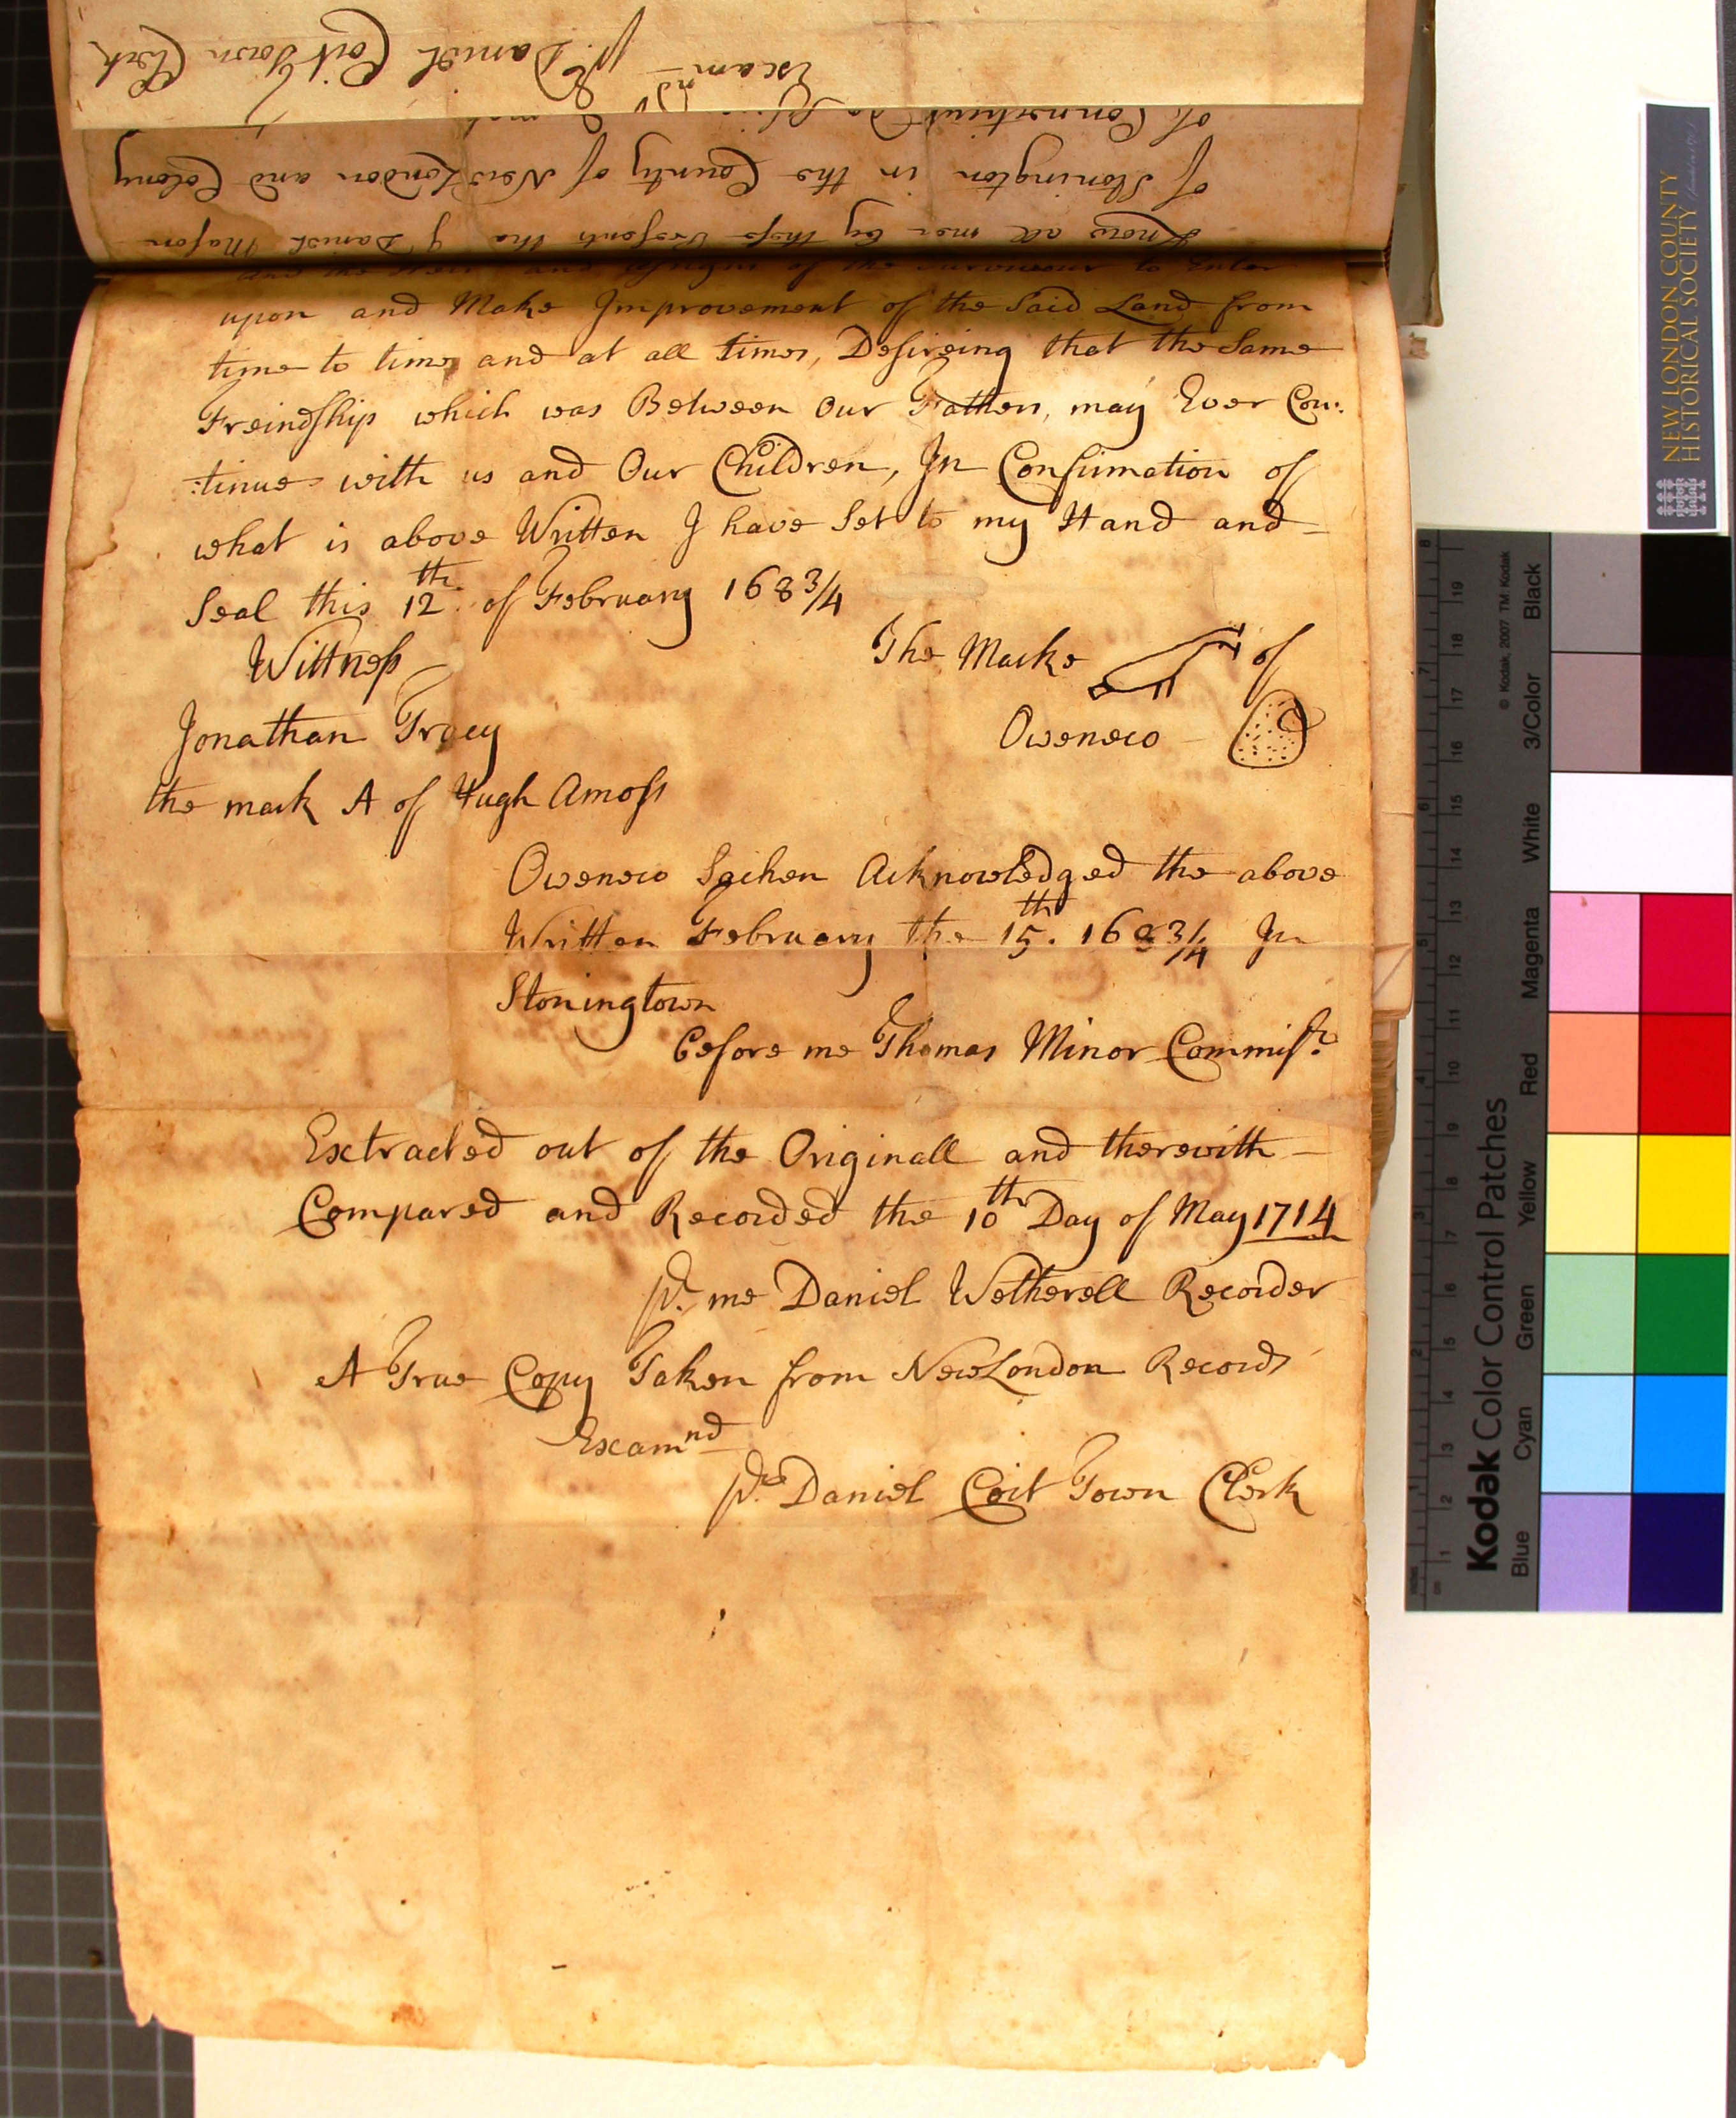 Examnd
pr Daniel Coit Town Clerk
Know all men by these Presents tha I Daniel Mason
of Stonington in the County of New London and Colony
of Connecticut
upon and Make Improvement of the Said Land from
time to time and at all times, Desireing that the Same
Freindship which was Between Our Fathers, may Ever Con:
:tinue with us and Our Children, In Confirmation of
what is above Written I have Set to my Hand and
Seal this 12th of February 168¾
Wittness
The Marke of
Jonathan Tracy
Oweneco
the mark A of Hugh Amoss
Oweneco Sachem Acknowledged the above
Written February the 15th. 168¾ In
Stoningtown
before me Thomas Minor Commissr.
Extracted out of the Originall and therewith
Compared and Recorded the 10th Day of May 1714
pr. me Daniel Wetherell Recorder
A True Copy Taken from New London Records
Examnd
pr Daniel Coit Town Clerk
NEW LONDON COUNTY
HISTORICAL SOCIETY
Kodak Color Control Patches
© Kodak, 2007 TM: Kodak
Blue Cyan Green Yellow Red Magenta White 3/Color Black
1 2 3 4 5 6 7 8 9 10 11 12 13 14 15 16 17 18 19